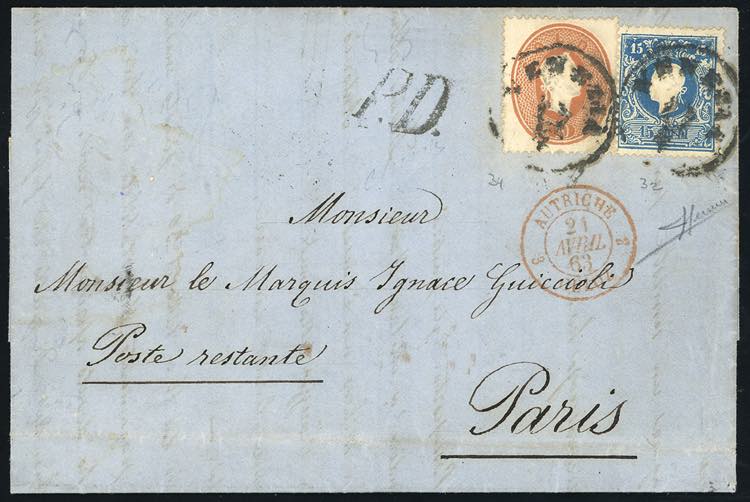 15
P.D.
34
32
AUTRICHE
21
AVRIL
63
Monsieur
Monsieur le Marquis Ignace Guiccioli
Poste restante
Paris